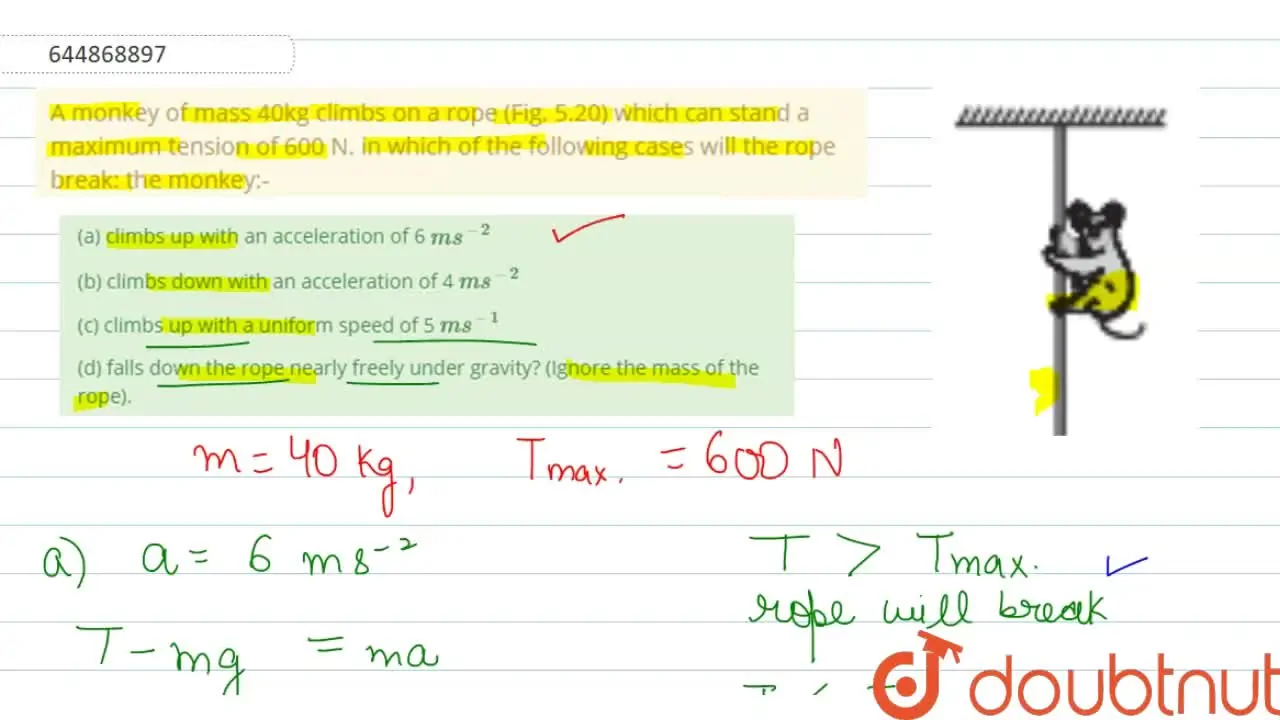 644868897
A monkey of mass 40kg climbs on a rope (Fig. 5.20) which can stand a
maximum tension of 600 N. in which of the following cases will the rope
break: the monkey:-
(a) climbs up with an acceleration of 6 ms⁻²
(b) climbs down with an acceleration of 4 ms⁻²
(c) climbs up with a uniform speed of 5 ms⁻¹
(d) falls down the rope nearly freely under gravity? (Ignore the mass of the
rope).
m = 40 kg, Tmax. = 600 N
a) a = 6 ms⁻²
T > Tmax.
rope will break
T - mg = ma
doubtnut